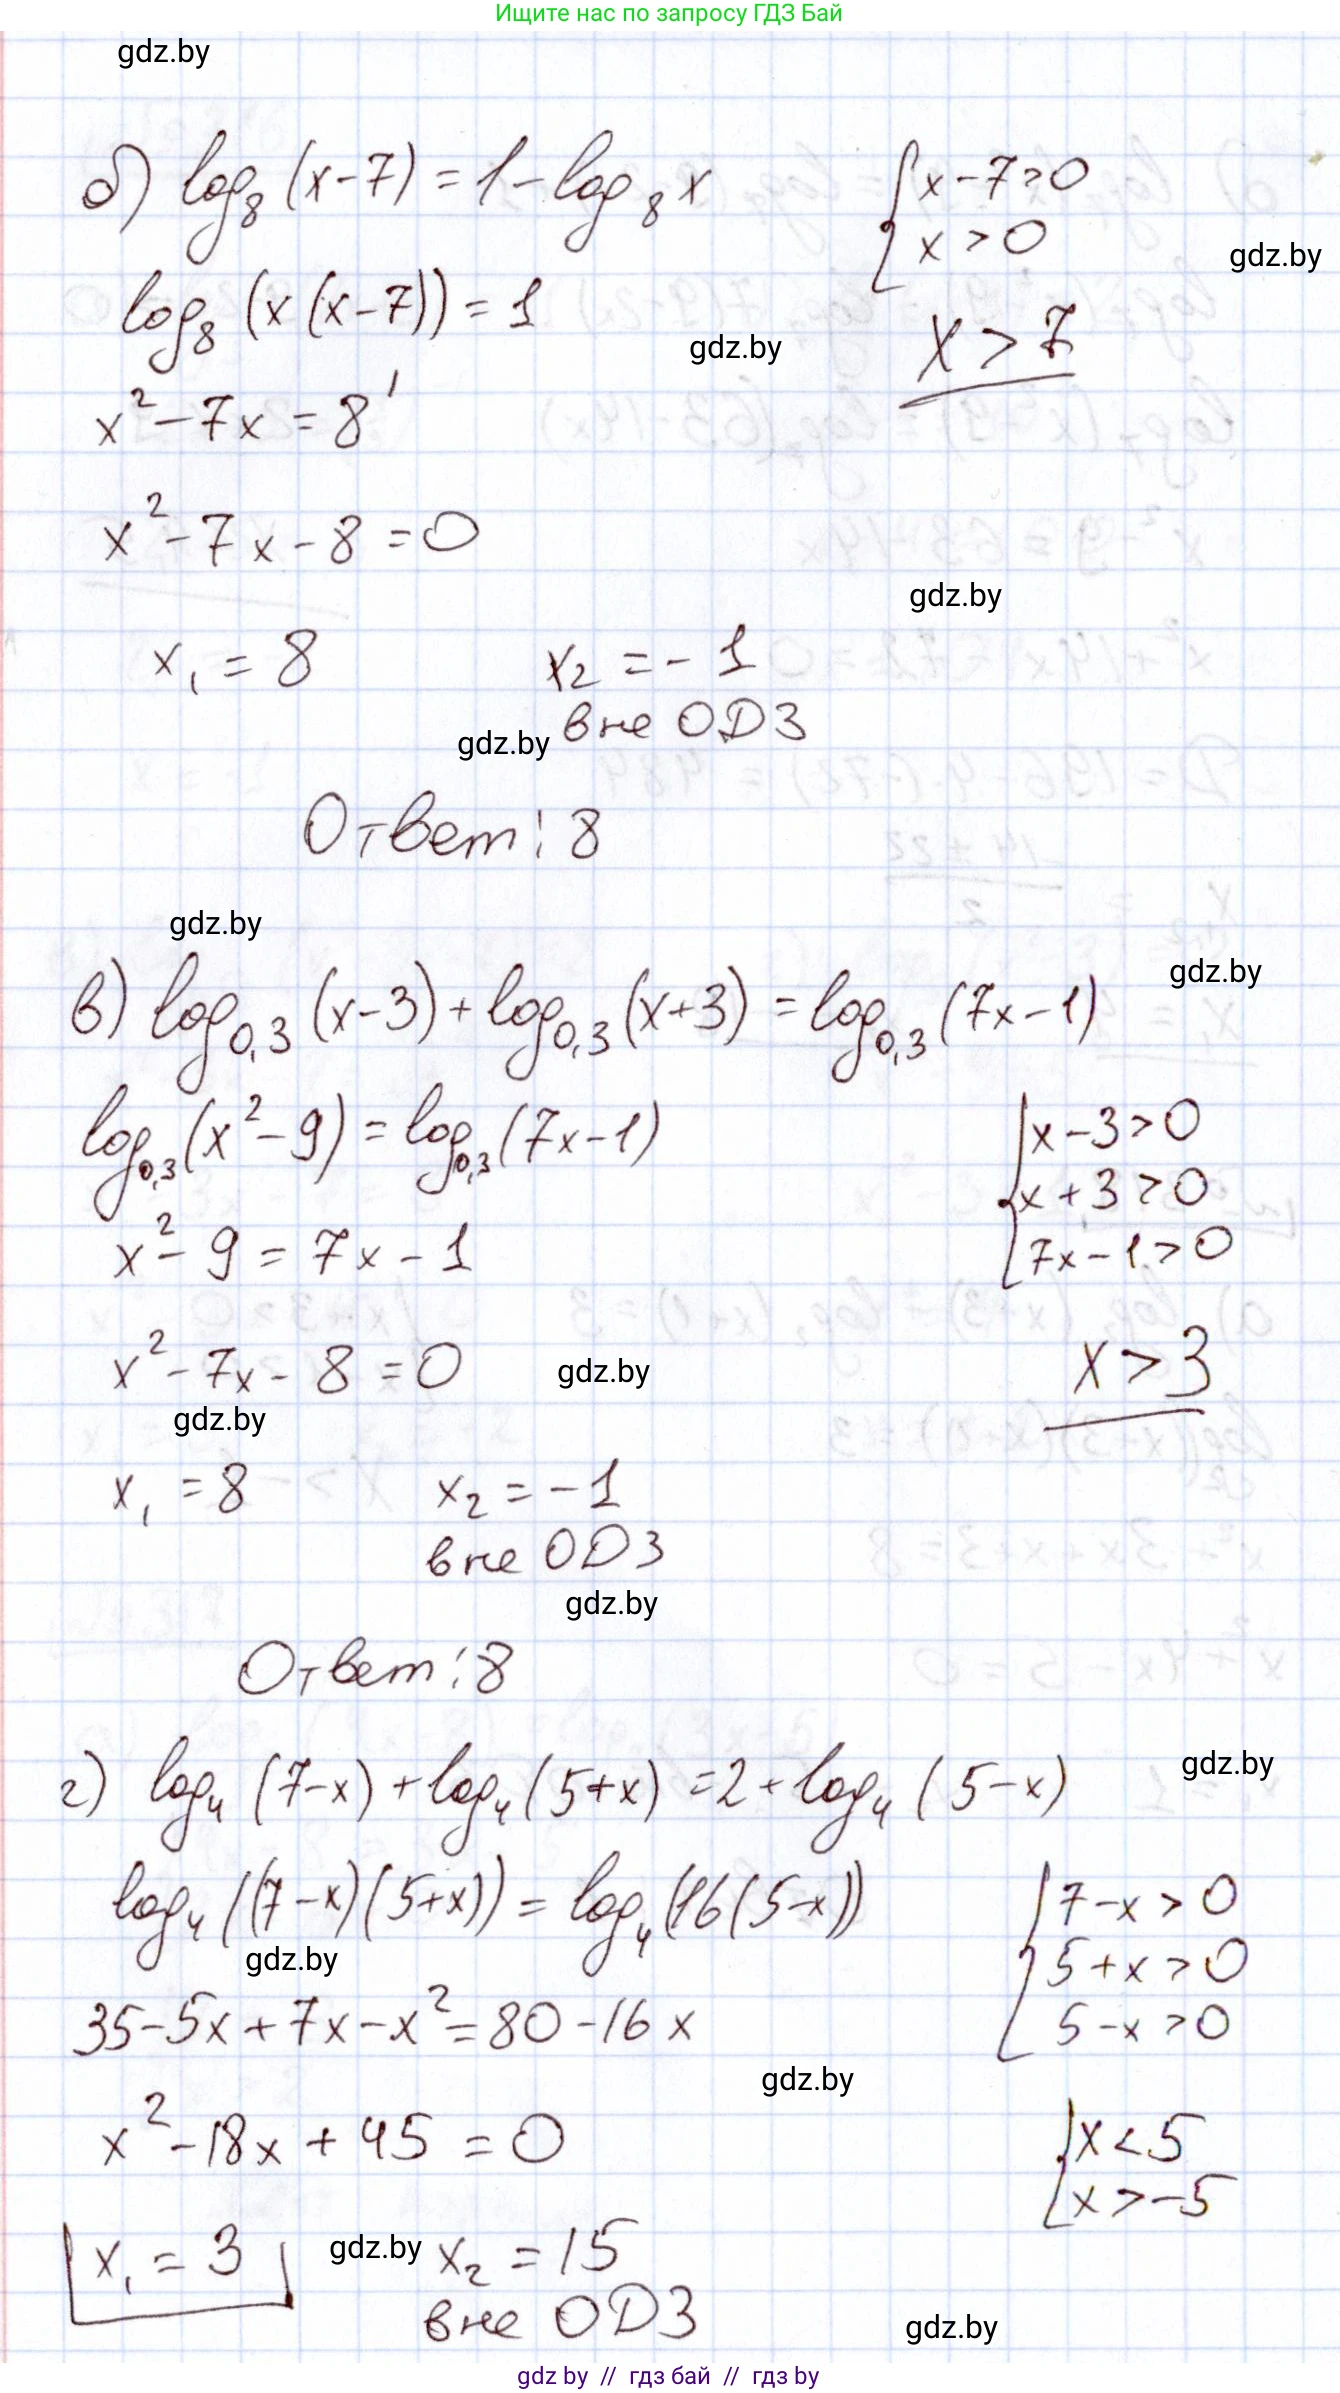 Ищите нас по запросу ГДЗ Бай
gdz.by
б) log₈ (x-7) = 1 - log₈ x
{ x-7>0
x > 0
gdz.by
log₈ (x (x-7)) = 1
gdz.by
x > 7
x² - 7x = 8¹
x² - 7x - 8 = 0
gdz.by
x₁ = 8
x₂ = -1
gdz.by
вне ОДЗ
Ответ: 8
gdz.by
gdz.by
в) log₀,₃ (x-3) + log₀,₃ (x+3) = log₀,₃ (7x-1)
log₀,₃ (x²-9) = log₀,₃ (7x-1)
{ x-3>0
x+3>0
7x-1>0
x² - 9 = 7x - 1
x² - 7x - 8 = 0
gdz.by
x > 3
gdz.by
x₁ = 8
x₂ = -1
вне ОДЗ
gdz.by
Ответ: 8
г) log₄ (7-x) + log₄ (5+x) = 2 + log₄ (5-x)
gdz.by
log₄ ((7-x)(5+x)) = log₄ (16(5-x))
{ 7-x > 0
5+x > 0
5-x > 0
gdz.by
35-5x+7x-x² = 80-16x
gdz.by
x² - 18x + 45 = 0
{ x < 5
x > -5
x₁ = 3
gdz.by
x₂ = 15
вне ОДЗ
gdz.by
gdz by // гдз бай // гдз by